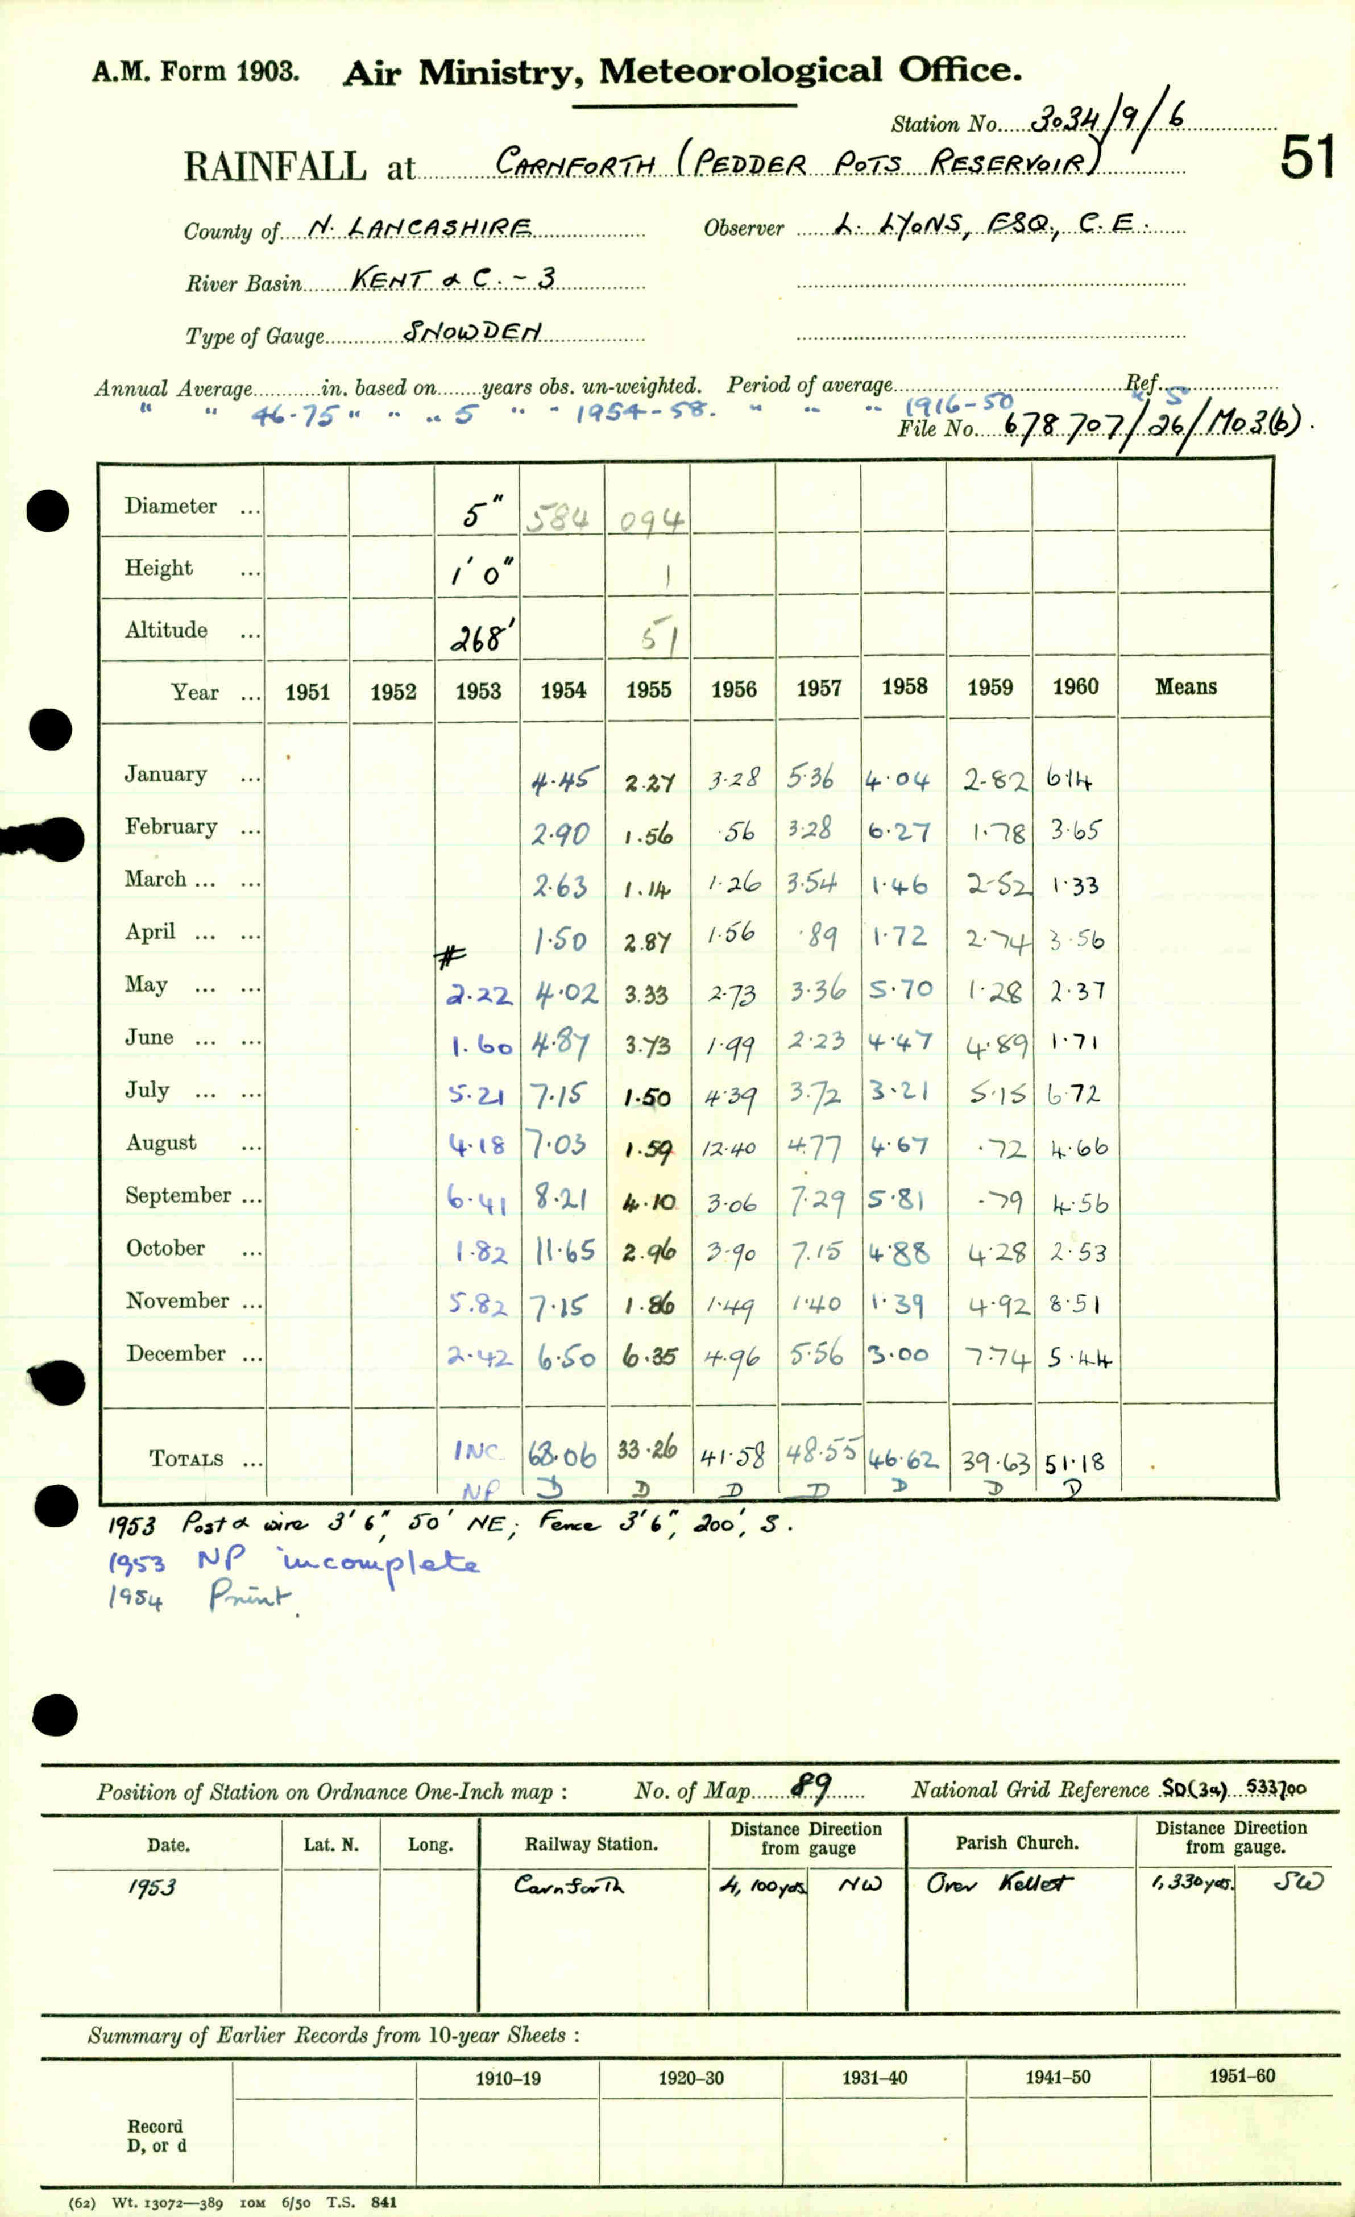 A.M. Form 1903. Air Ministry, Meteorological Office.
Station No. 3034/9/6
51
RAINFALL at CARNFORTH (PEDDER POTS RESERVOIR)
County of N. LANCASHIRE Observer L. LYONS, ESQ., C.E.
River Basin KENT & C. - 3
Type of Gauge SNOWDEN
Annual Average in. based on years obs. un-weighted. Period of average Ref.
" " 46.75 " " " 5 " " 1954-58. " " " 1916-50 S
File No. 678707/26/Mo3(b).
Diameter ... 5" 584 094
Height ... 1' 0" 1
Altitude ... 268' 51
Year ... 1951 1952 1953 1954 1955 1956 1957 1958 1959 1960 Means
January ... 4.45 2.27 3.28 5.36 4.04 2.82 6.14
February ... 2.90 1.56 .56 3.28 6.27 1.78 3.65
March ... ... 2.63 1.14 1.26 3.54 1.46 2.52 1.33
April ... ... # 1.50 2.87 1.56 .89 1.72 2.74 3.56
May ... ... 2.22 4.02 3.33 2.73 3.36 5.70 1.28 2.37
June ... ... 1.60 4.87 3.73 1.99 2.23 4.47 4.89 1.71
July ... ... 5.21 7.15 1.50 4.39 3.72 3.21 5.15 6.72
August ... 4.18 7.03 1.59 12.40 4.77 4.67 .72 4.66
September ... 6.41 8.21 4.10 3.06 7.29 5.81 .79 4.56
October ... 1.82 11.65 2.96 3.90 7.15 4.88 4.28 2.53
November ... 5.82 7.15 1.86 1.49 1.40 1.39 4.92 8.51
December ... 2.42 6.50 6.35 4.96 5.56 3.00 7.74 5.44
TOTALS ... INC 68.06 33.26 41.58 48.55 46.62 39.63 51.18
NP D D D D D D D
1953 Post & wire 3' 6", 50' NE; Fence 3' 6", 200', S.
1953 NP incomplete
1954 Print.
Position of Station on Ordnance One-Inch map : No. of Map 89 National Grid Reference SD(34) 533700
Date. Lat. N. Long. Railway Station. Distance Direction from gauge Parish Church. Distance Direction from gauge.
1953 Carnforth 4,100 yds NW Over Kellet 1,330 yds. SW
Summary of Earlier Records from 10-year Sheets :
1910–19 1920–30 1931–40 1941–50 1951–60
Record
D, or d
(62) Wt. 13072—389 10M 6/50 T.S. 841